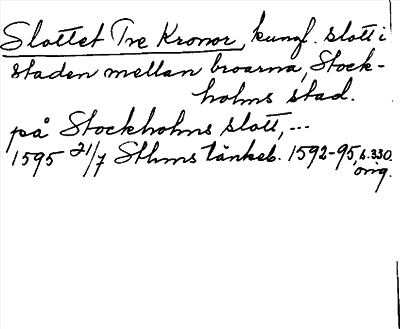 Slottet Tre Kronor, kungl. slott i
staden mellan broarna, Stock-
holms stad.
på Stockholms slott, ---
1595 21/7 Sthms tänkeb. 1592-95, s. 330.
orig.